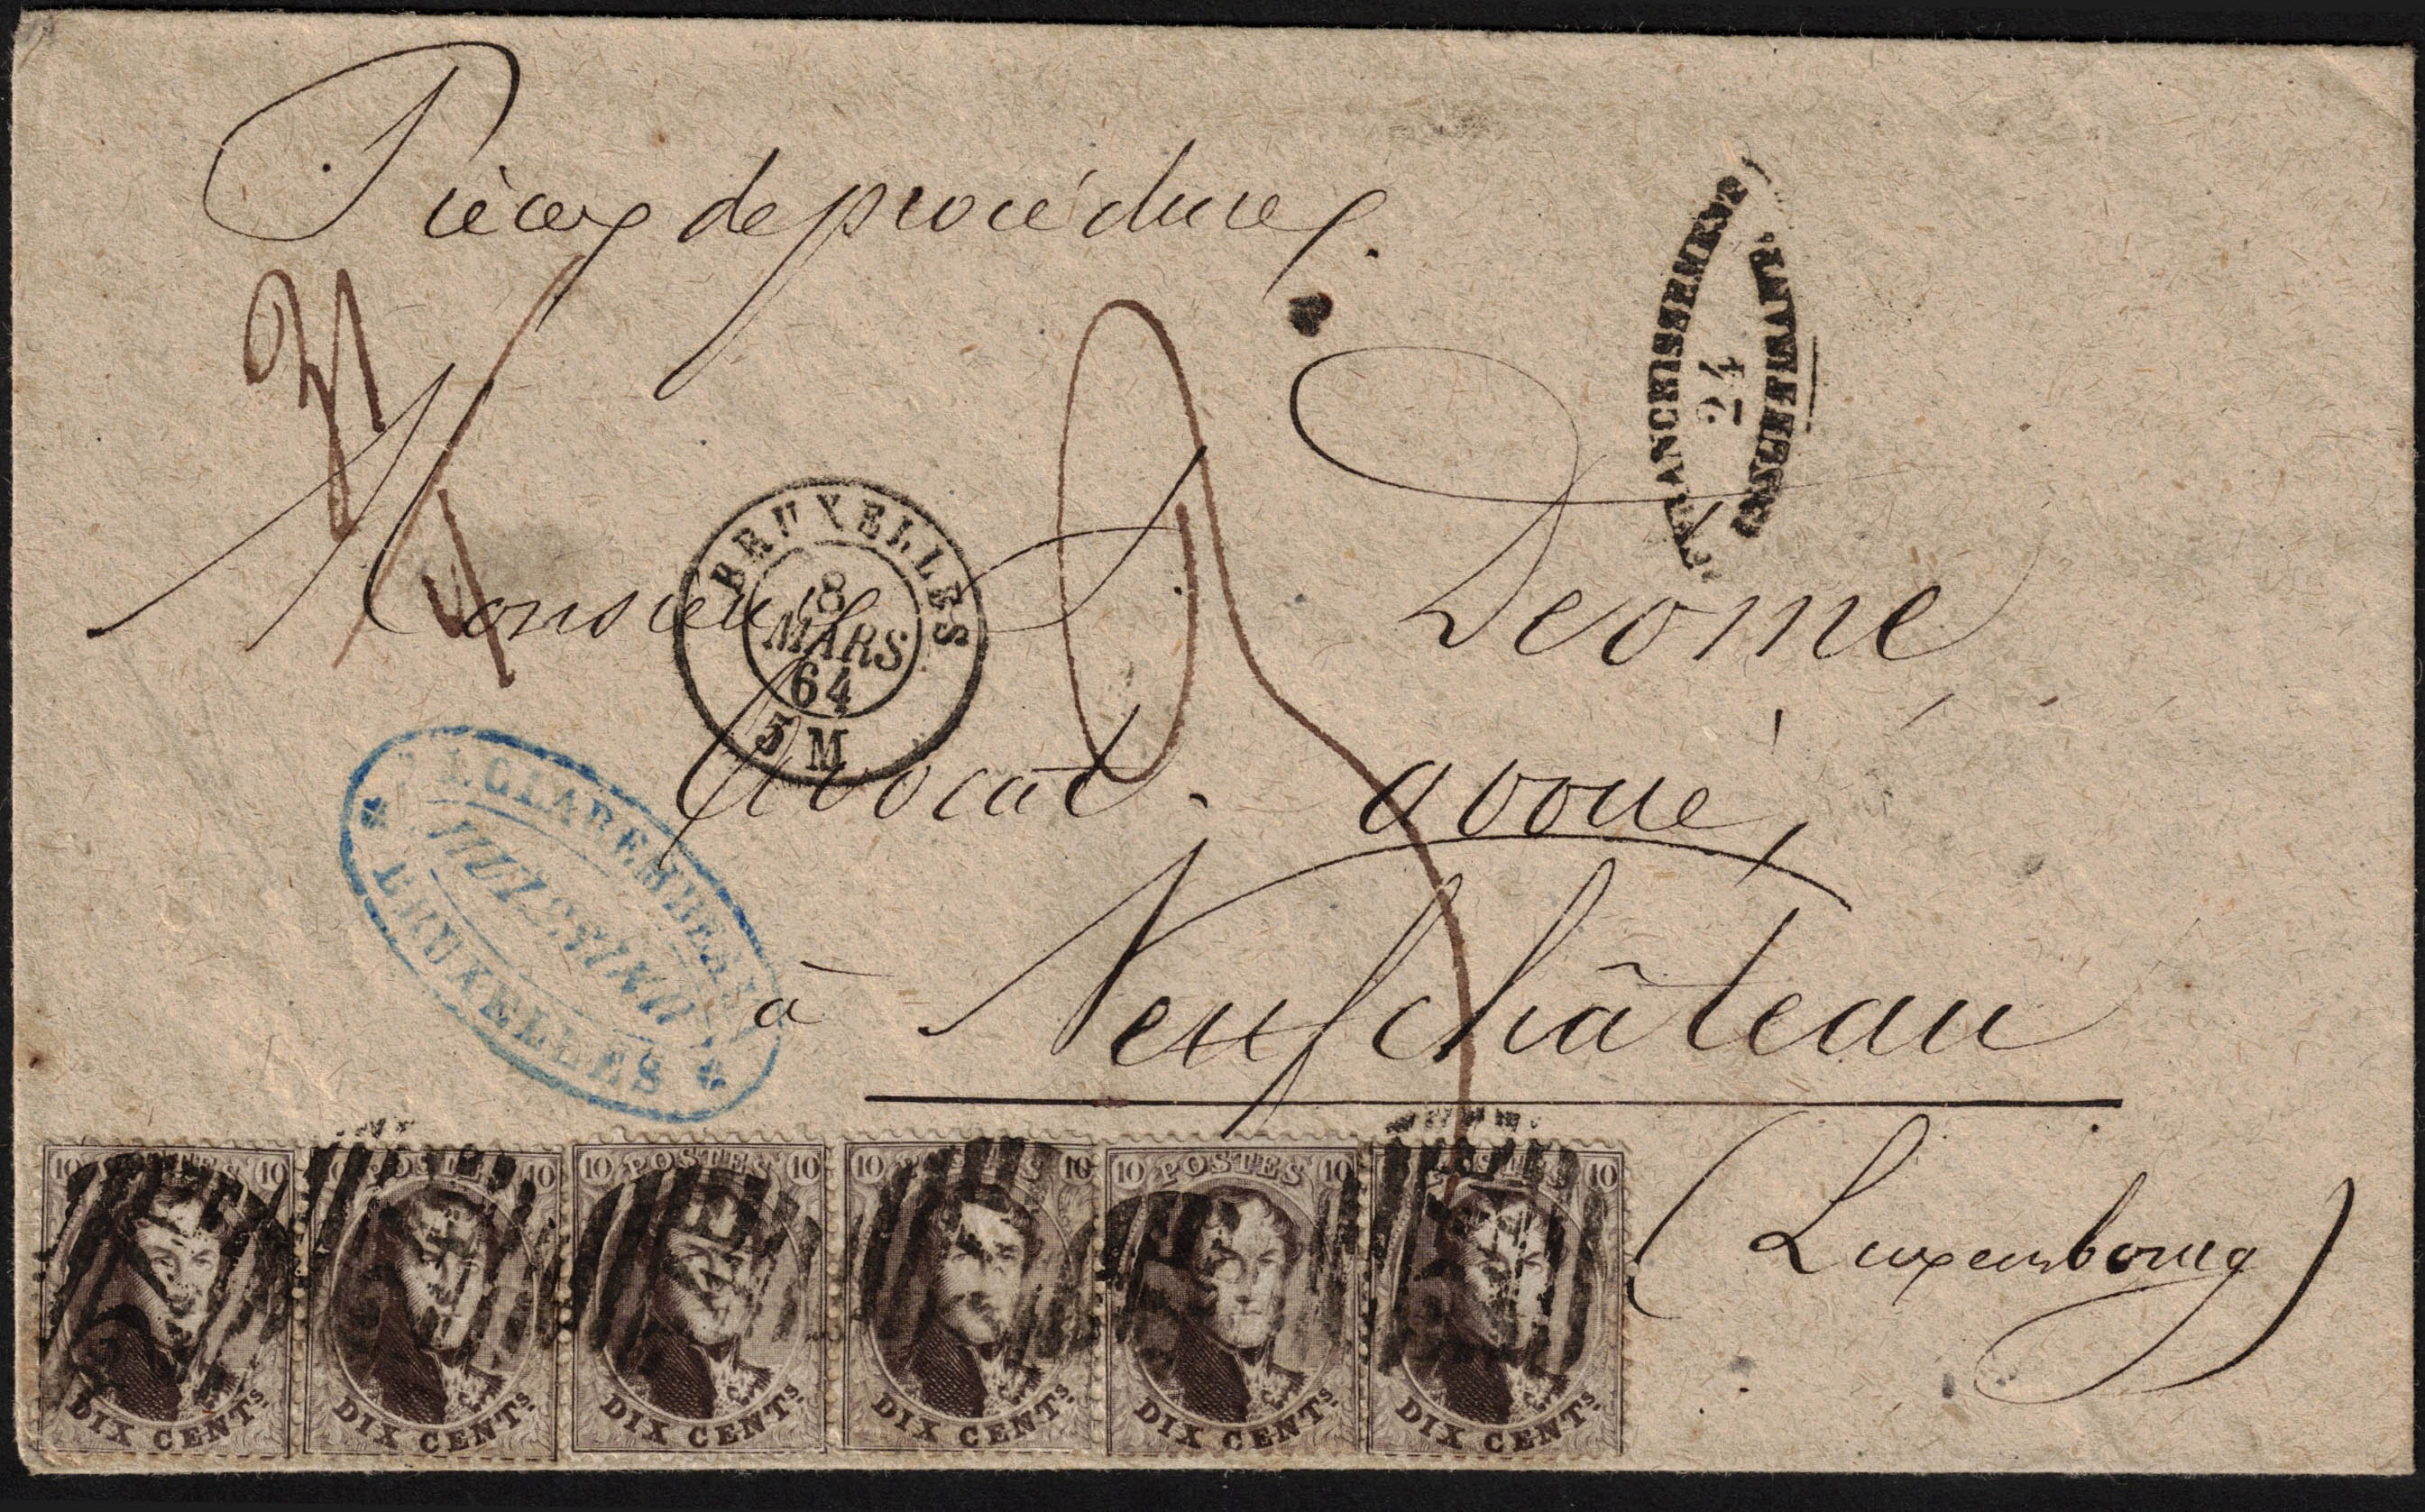 Pièces de procédure.
FRANCHISSEMENT
24
INSUFFISANT
Monsieur Deome,
BRUXELLES
8
MARS
64
5 M
Avocat-avoué,
BRUXELLES
à Neufchâteau
(Luxembourg)
10 POSTES 10
DIX CENTS.
10 POSTES 10
DIX CENTS.
10 POSTES 10
DIX CENTS.
10 POSTES 10
DIX CENTS.
10 POSTES 10
DIX CENTS.
10 POSTES 10
DIX CENTS.